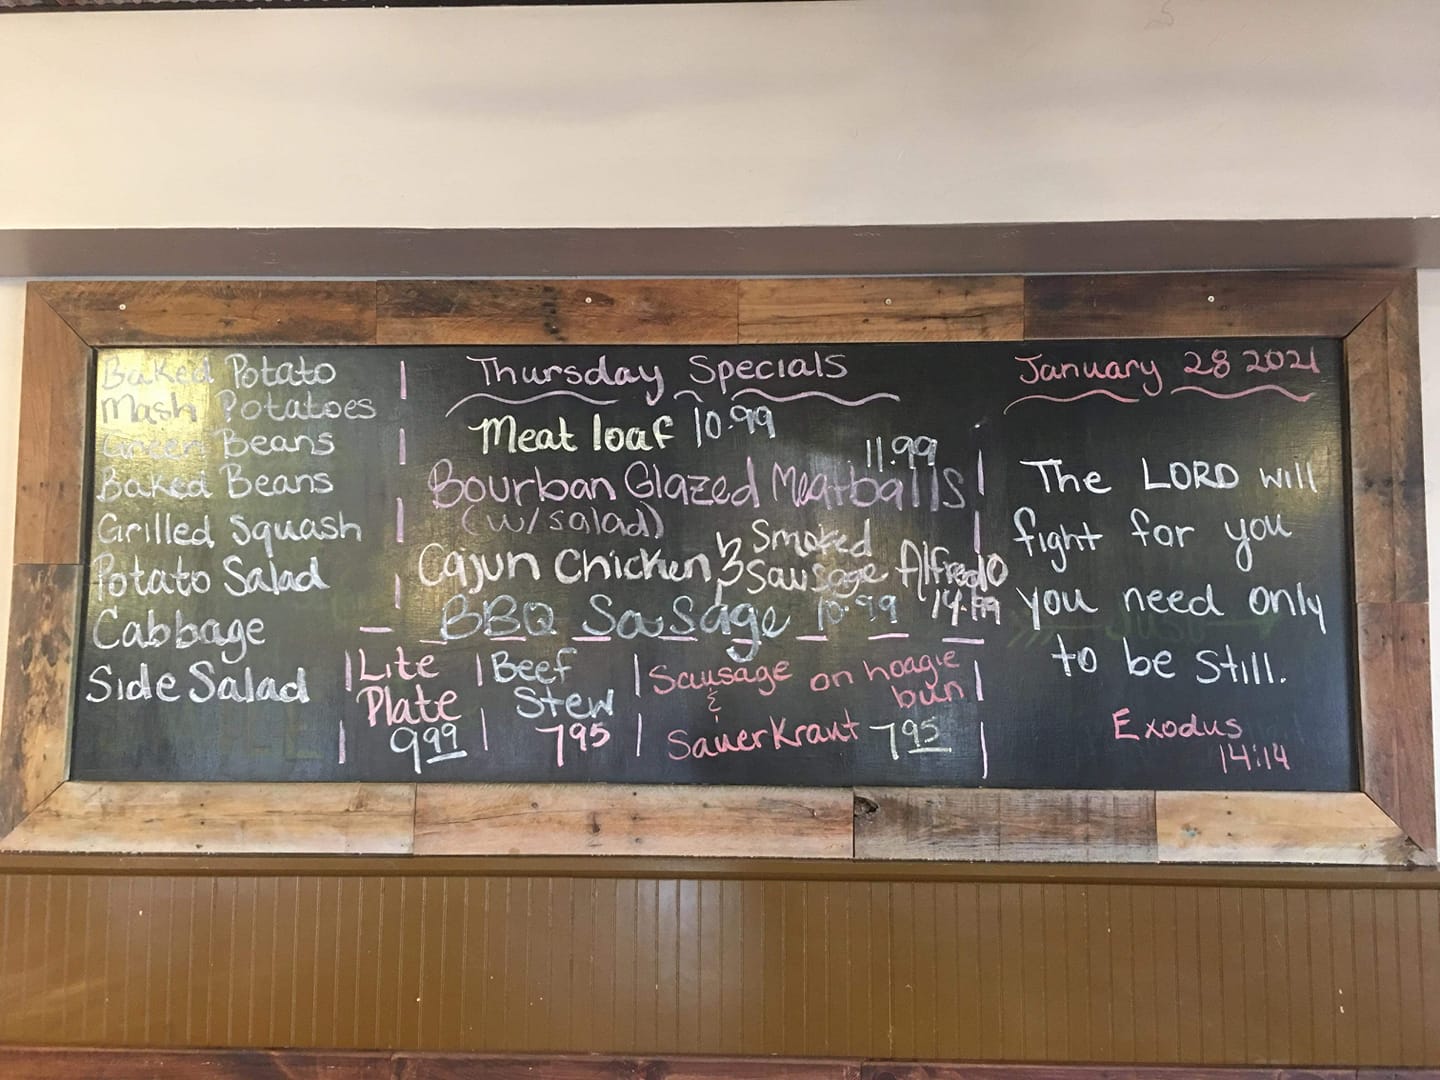 Baked Potato
Mash Potatoes
Green Beans
Baked Beans
Grilled Squash
Potato Salad
Cabbage
Side Salad
Thursday Specials
Meat loaf 10.99
11.99
Bourban Glazed Meatballs
(w/salad)
Cajun Chicken & Smoked Sausage Alfredo
14.99
BBQ Sausage 10.99
Lite
Plate
9.99
Beef
Stew
7.95
Sausage on hoagie
& bun
SauerKraut 7.95
January 28 2021
The LORD will
fight for you
you need only
to be still.
Exodus
14:14